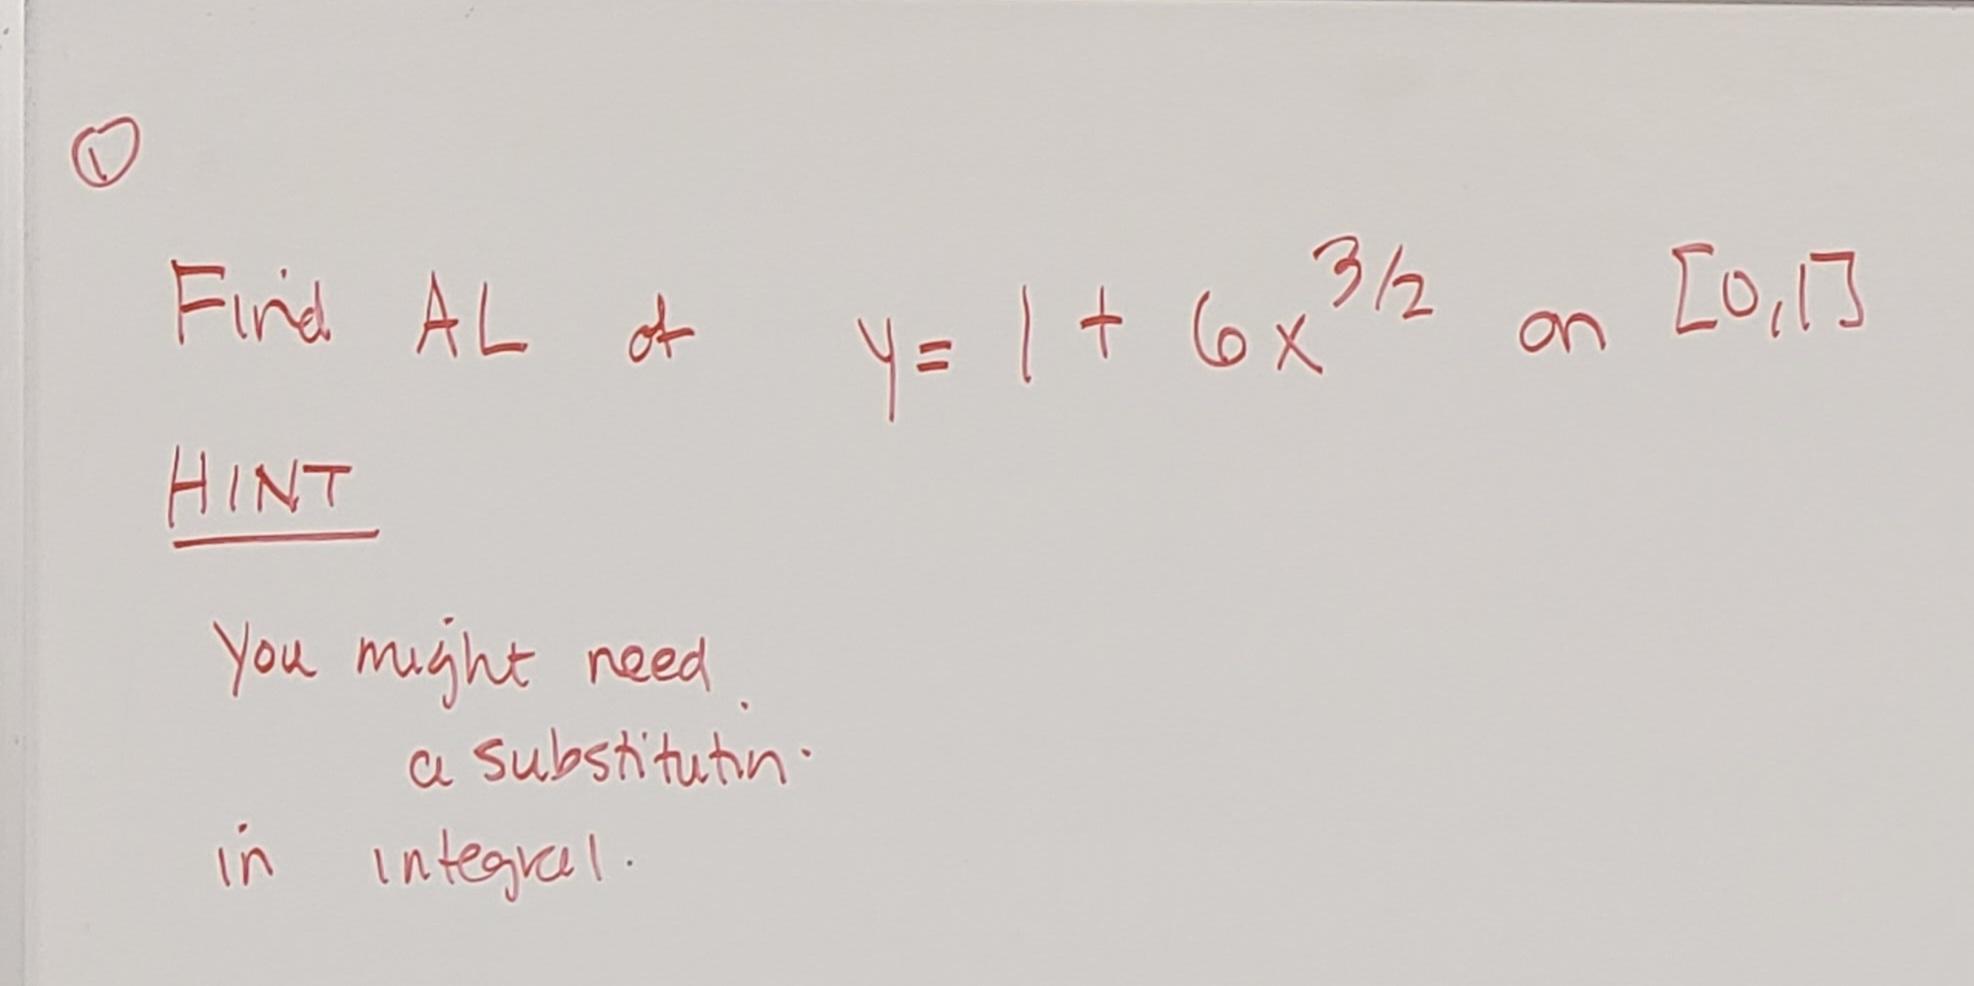 ①
Find AL of y = 1 + 6x^{3/2} on [0,1]
HINT
You might need
a substitutin.
in integral.